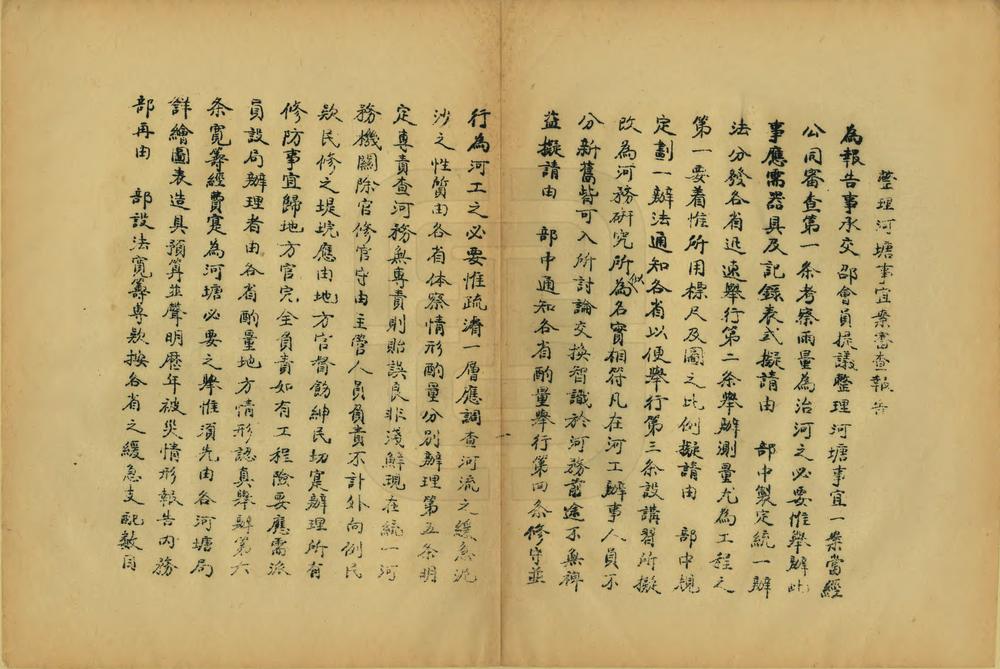 整理河塘事宜案審查報告
為報告事承交邵會員提議整理河塘事宜一案當經
公同審查第一条考察雨量為治河之必要惟舉辦此
事應需器具及記錄表式擬請由　部中製定統一辦
法分發各省迅速舉行第二条舉辦測量尤為工程之
第一要着惟所用標尺及圖之比例擬請由　部中規
定劃一辦法通知各省以便舉行第三条設講習所擬
改為河務研究所似為名實相符凡在河工辦事人員不
分新舊皆可入所討論交換智識於河務前途不無裨
益擬請由　部中通知各省酌量舉行第四条修守並
行為河工之必要惟疏濬一層應調查河流之緩急泥
沙之性質由各省体察情形酌量分別辦理第五条明
定專責查河務無專責則貽誤良非淺鮮現在統一河
務機關除官修官守由主管人員負責不計外向例民
欵民修之堤垸應由地方官督飭紳民切寔辦理所有
修防事宜歸地方官完全負責如有工程險要應需派
員設局辦理者由各省酌量地方情形認真舉辦第六
条寬籌經費寔為河塘必要之舉惟須先由各河塘局
詳繪圖表造具預算並聲明歷年被災情形報告內務
部再由　部設法寬籌專欵按各省之緩急支配數目